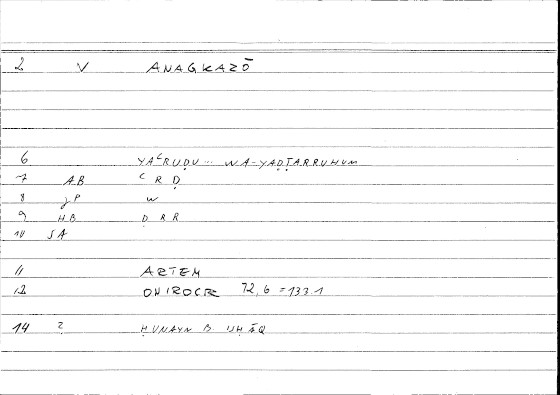 2 V ANAGKAZŌ
6 YAʿRUḌU ... WA-YAḌṬARRUHUM
7 AB ʿ R Ḍ
8 JP W
9 HB Ḍ R R
10 SA
11 ARTEM
12 ONIROCR 72,6 = 133.1
14 2 ḤUNAYN B. ISḤĀQ